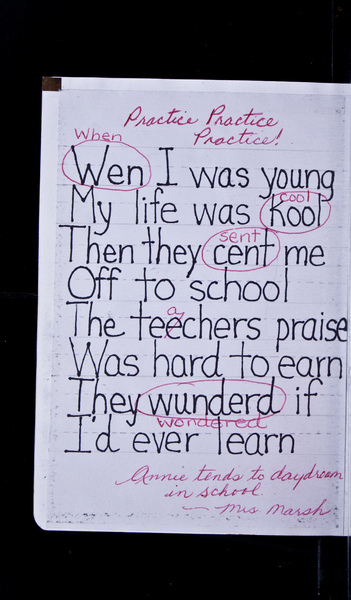 Practice Practice
Practice!
When
Wen I was young
cool
My life was kool
sent
Then they cent me
Off to school
a
The teechers praise
Was hard to earn
They wunderd if
wondered
I'd ever learn
Annie tends to daydream
in school.
— Mrs Marsh